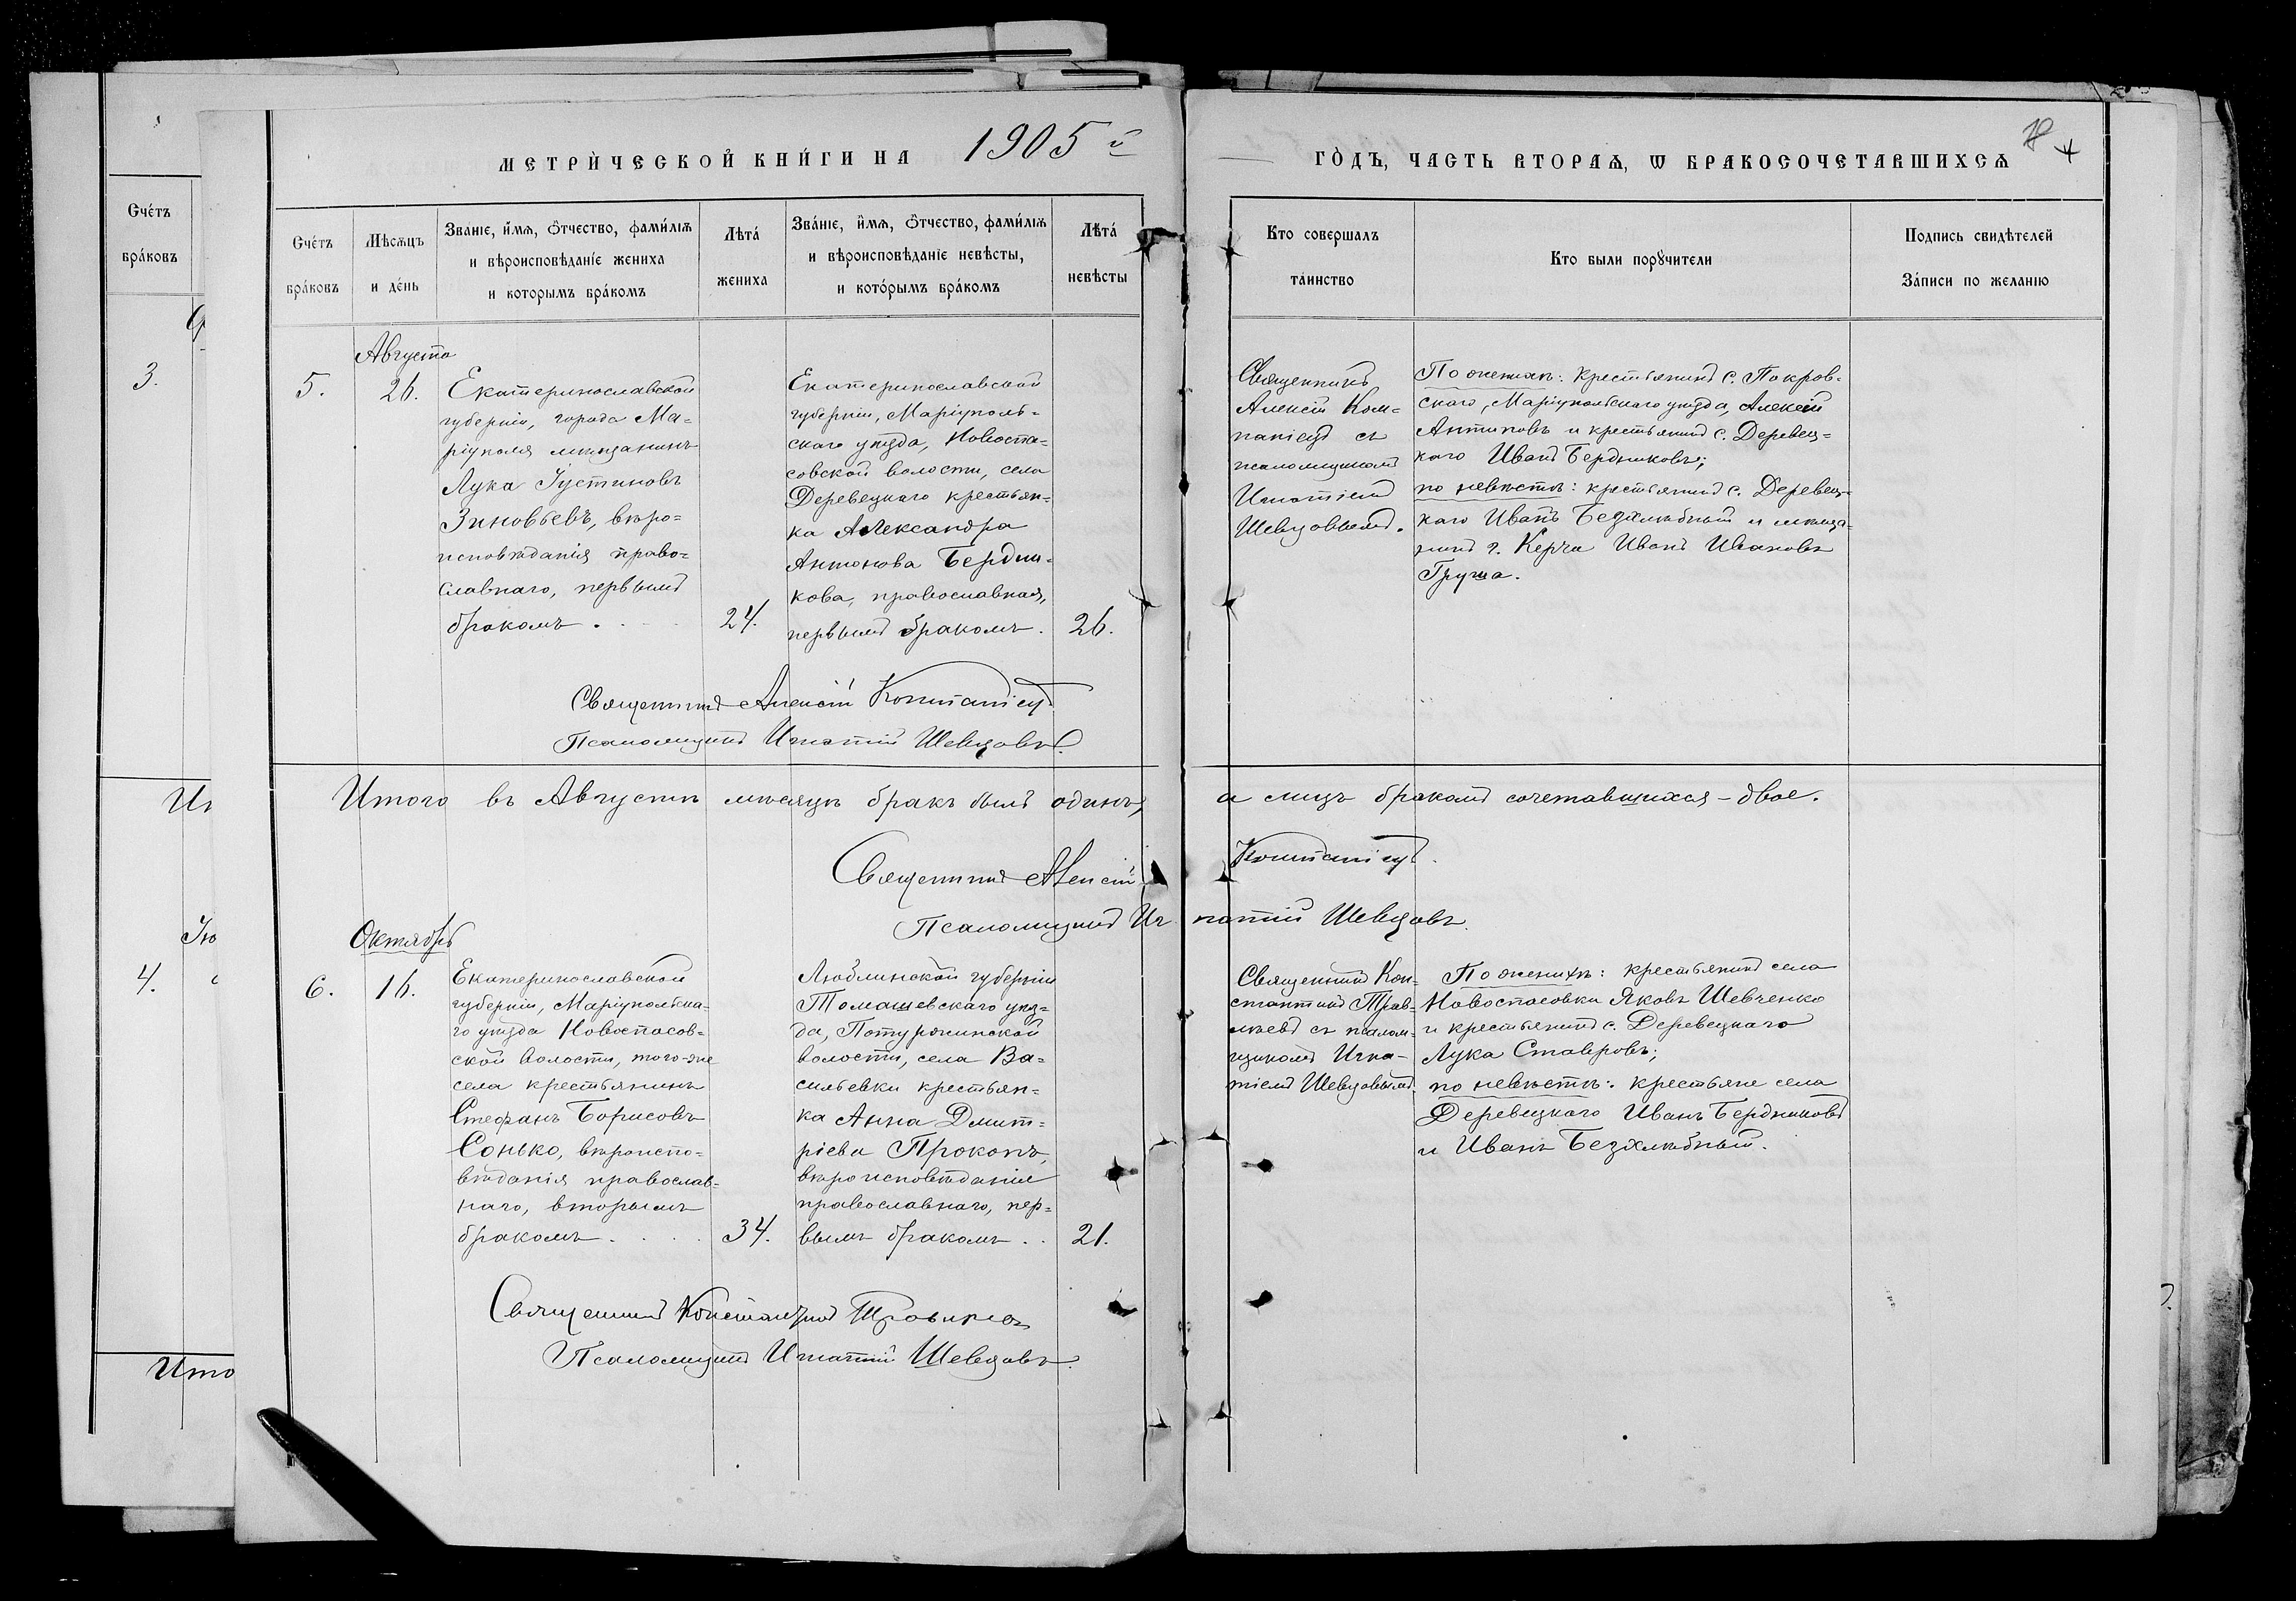 МЕТРИЧЕСКОЙ КНИГИ НА 1905 й
ГОДЪ, ЧАСТЬ ВТОРАѦ, Ѡ БРАКОСОЧЕТАВШИХСѦ
Счетъ
браковъ
3.
4.
Ито
Счетъ
браковъ
Мѣсѧцъ
и день
Званіе, имѧ, ѻтчество, фамиліѧ
и вѣроисповѣданіе жениха
и которымъ бракомъ
Лѣта
жениха
Званіе, имѧ, ѻтчество, фамиліѧ
и вѣроисповѣданіе невѣсты,
и которымъ бракомъ
Лѣта
невѣсты
Кто совершалъ
таинство
Кто были порꙋчители
Подпись свидѣтелей
Записи по желанію
Августа
5.
26.
Екатеринославской
губерніи, города Ма-
ріуполя мѣщанинъ
Лука Іустиновъ
Зиновьевъ, вѣро-
исповѣданія право-
славнаго, первымъ
бракомъ .
24.
Екатеринославской
губерніи, Маріуполь-
скаго уѣзда, Новоспа-
совской волости, села
Деревецкаго крестьян-
ка Александра
Антонова Бердни-
кова, православная,
первымъ бракомъ.
26.
Священникъ
Алексій Ком-
паніецъ съ
псаломщикомъ
Игнатіемъ
Шевцовымъ.
По женихѣ: крестьянинъ с. Покров-
скаго, Маріупольскаго уѣзда, Алексій
Антиповъ и крестьянинъ с. Деревец-
каго Иванъ Бердниковъ;
по невѣстѣ: крестьянинъ с. Деревец-
каго Иванъ Безхлѣбный и мѣща-
нинъ г. Керчи Иванъ Ивановъ
Груша.
Священникъ Алексій Компаніецъ
Псаломщикъ Игнатій Шевцовъ.
Итого въ Августѣ мѣсяцѣ бракъ былъ одинъ, а лицъ бракомъ сочетавшихся - двое.
Священникъ Алексій Компаніецъ.
Псаломщикъ Игнатій Шевцовъ.
Октябрь
6.
16.
Екатеринославской
губерніи, Маріупольска-
го уѣзда Новоспасов-
ской волости, того-же
села крестьянинъ
Стефанъ Борисовъ
Сонько, вѣроиспо-
вѣданія православ-
наго, вторымъ
бракомъ . . . .
34.
Люблинской губерніи
Томашевскаго уѣз-
да, Потуржинской
волости, села Ва-
сильевки крестьян-
ка Анна Дмит-
ріева Прокопъ,
вѣроисповѣданія
православнаго, пер-
вымъ бракомъ . .
21.
Священникъ Кон-
стантинъ Трав-
съ псалом-
щикомъ Игна-
тіемъ Шевцовымъ.
По женихѣ: крестьянинъ села
Новоспасовки Яковъ Шевченко
и крестьянинъ с. Деревецкаго
Лука Ставровъ;
по невѣстѣ: крестьяне села
Деревецкаго Иванъ Бердниковъ
и Иванъ Безхлѣбный.
Священникъ Константинъ
Псаломщикъ Игнатій Шевцовъ.